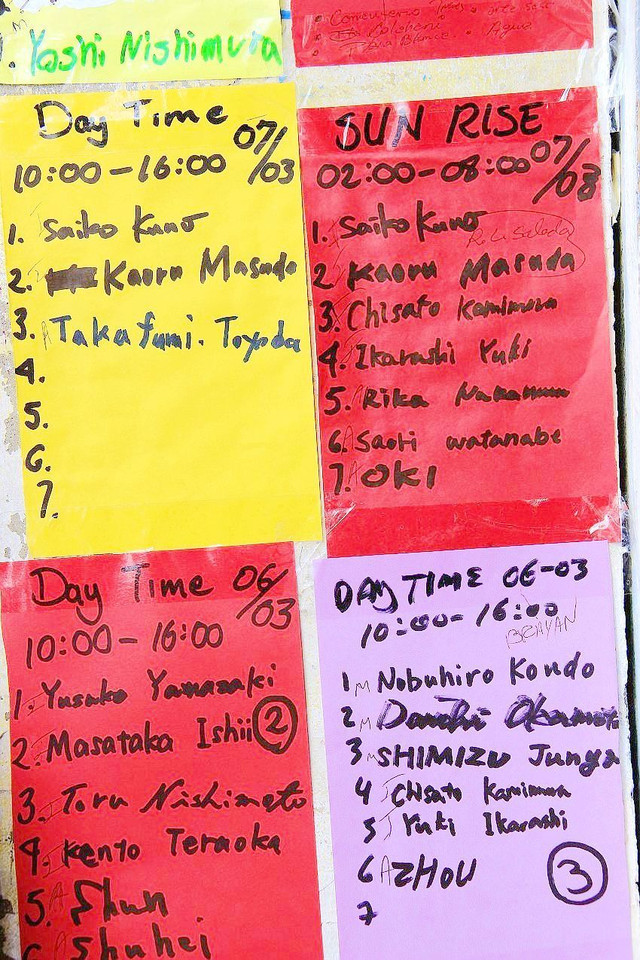 M
1. Yoshi Nishimura
Day Time 07/03
10:00-16:00
1. Saiko Kuno
2. Kaoru Masuda
3. A Takafumi. Toyoda
4.
5.
6.
7.
SUN RISE
02:00-08:00 07/03
1. Saiko Kuno
2 Kaoru Masuda
3. Chisato Kamimura
4. Ikarashi Yuki
5. A Rika Nakamura
6. A Saori watanabe
7. A OKI
Day Time 06/03
10:00-16:00
1. I Yusako Yamasaki
2. I Masataka Ishii ②
3. I Toru Nishimoto
4. I Kenyo Teraoka
5. A Shun
6 A Shuhei
DAY TIME 06-03
10:00-16:00
BRAYAN
1 M Nobuhiro Kondo
2 M
3 M SHIMIZU Junya
4 I Chisato Kamimura
5 I Yuki Ikarashi
6 A ZHOU
③
7